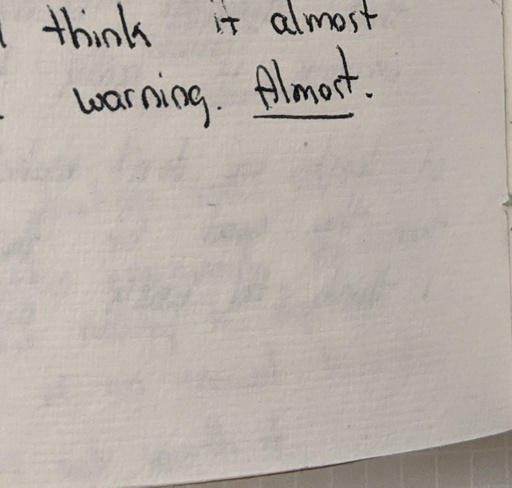 think it almost
warning. Almost.